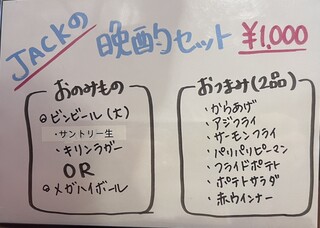 JACKの晩酌セット ¥1,000
おのみもの
◎ビンビール(大)
・サントリー生
・キリンラガー
OR
◎メガハイボール
おつまみ(2品)
・からあげ
・アジフライ
・サーモンフライ
・パリパリピーマン
・フライドポテト
・ポテトサラダ
・赤ウインナー